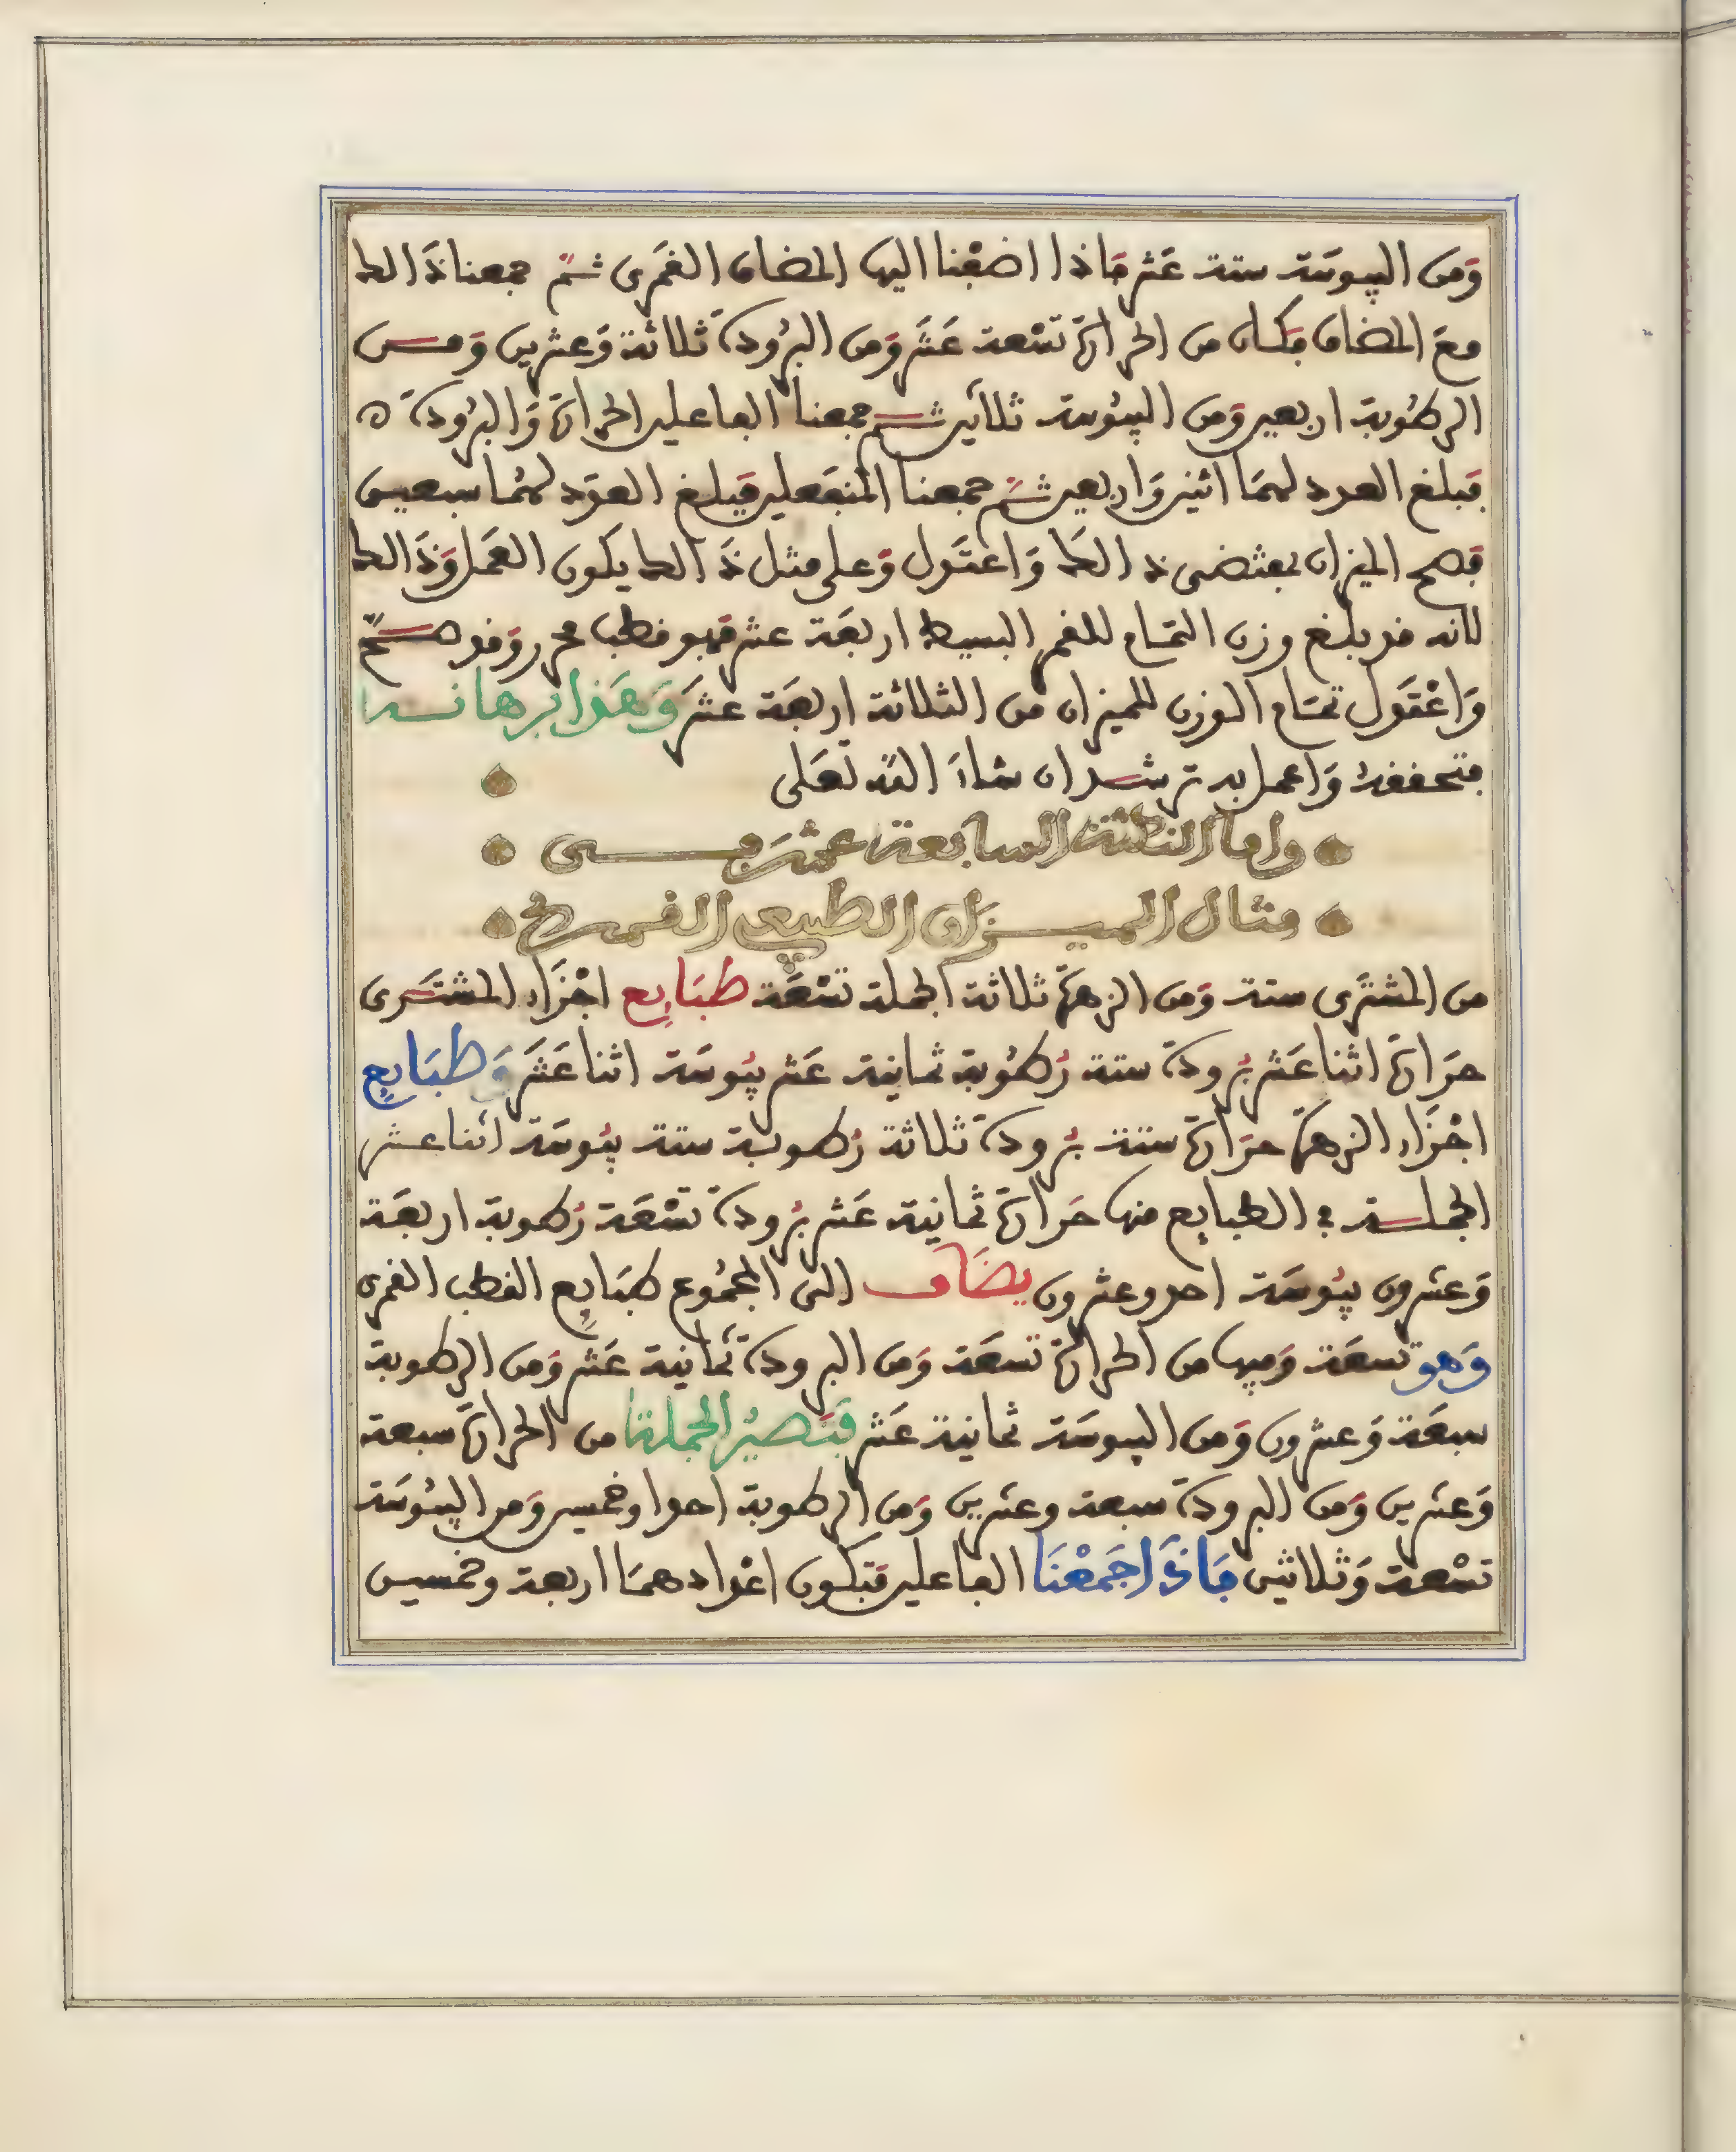 وَمن اليبوسَة ستة عَشر فاذا اضفْنا اليها المضاف القمَرى ثمّ جمعنا ذَالك
معَ المضاف فكان من الحرارة تسْعة عَشَر وَمن البرُودة ثلاثة وَعشرين وَمـن
الرطُوبة اربعين وَمن اليبُوسة ثلاثين ثـم جمعنا الفاعلين الحرارة وَالبرُودة ه
فبلغ العدد لهمَا اثنين وَاربعين ثـم جمعنا المنفَعلين فبلغ العدَد لهُما سبعين
فصح الميزان بمقتضى ذَالكَ وَاعتَدل وَعلى مثل ذَالك يكون العَمَل وَذَالك
لانه قد بلغ وزن التمَـام للقمر البسيط اربعَة عشر فهو قطب محرر وَقد صـحّ
وَاعْتَدل تمـَام الوزن للميزان من الثلاثة اربعَة عشَر وَهَذا برهانـه
فتحققهُ وَاعمل به ترشـد ان شاءَ اللّه تعَلى
واما النكتة السابعة عشرَ فـــى
مثال الميـــزان الطبيعى القمـرى
من المشتَرى ستة وَمن الزهرة ثلاثة الجملة تسْعَة طبَايع اجْزَاء المشتَـرى
حرَارة اثنا عَشر بُرودة ستة رُطُوبة ثمانية عَشر يبُوسَة اثنا عَشَر وَطبَايع
اجْزَاء الزهرة حرَارة ستة بُرودة ثلاثة رُطوبـة ستة يبُوسَة اثنا عشر
الجملـة في الطبايع منها حَرارة ثمانية عَشر بُرودة تسْعَة رُطوبة اربعَة
وَعشرون يبُوسَة احد وعشرون يضَاف الى المجمُوع طبَايع القطب القمرى
وَهو تسعَة وَفيها من الحرارة تسعَة وَمن البرودة ثمانية عَشر وَمن الرطوبة
سبعَة وَعشرون وَمن اليبوسَة ثمانية عَشر فتَصيُر الجملة من الحرارة سبعة
وَعشرين وَمن البرودة سبعة وعشرين وَمن الرطوبة احدا وخمسين وَمن اليبُوسَة
تسْعة وَثلاثين فاذَا جَمَعْنَا الفاعلين فتكون اعْدادهمَا اربعة وخمسين